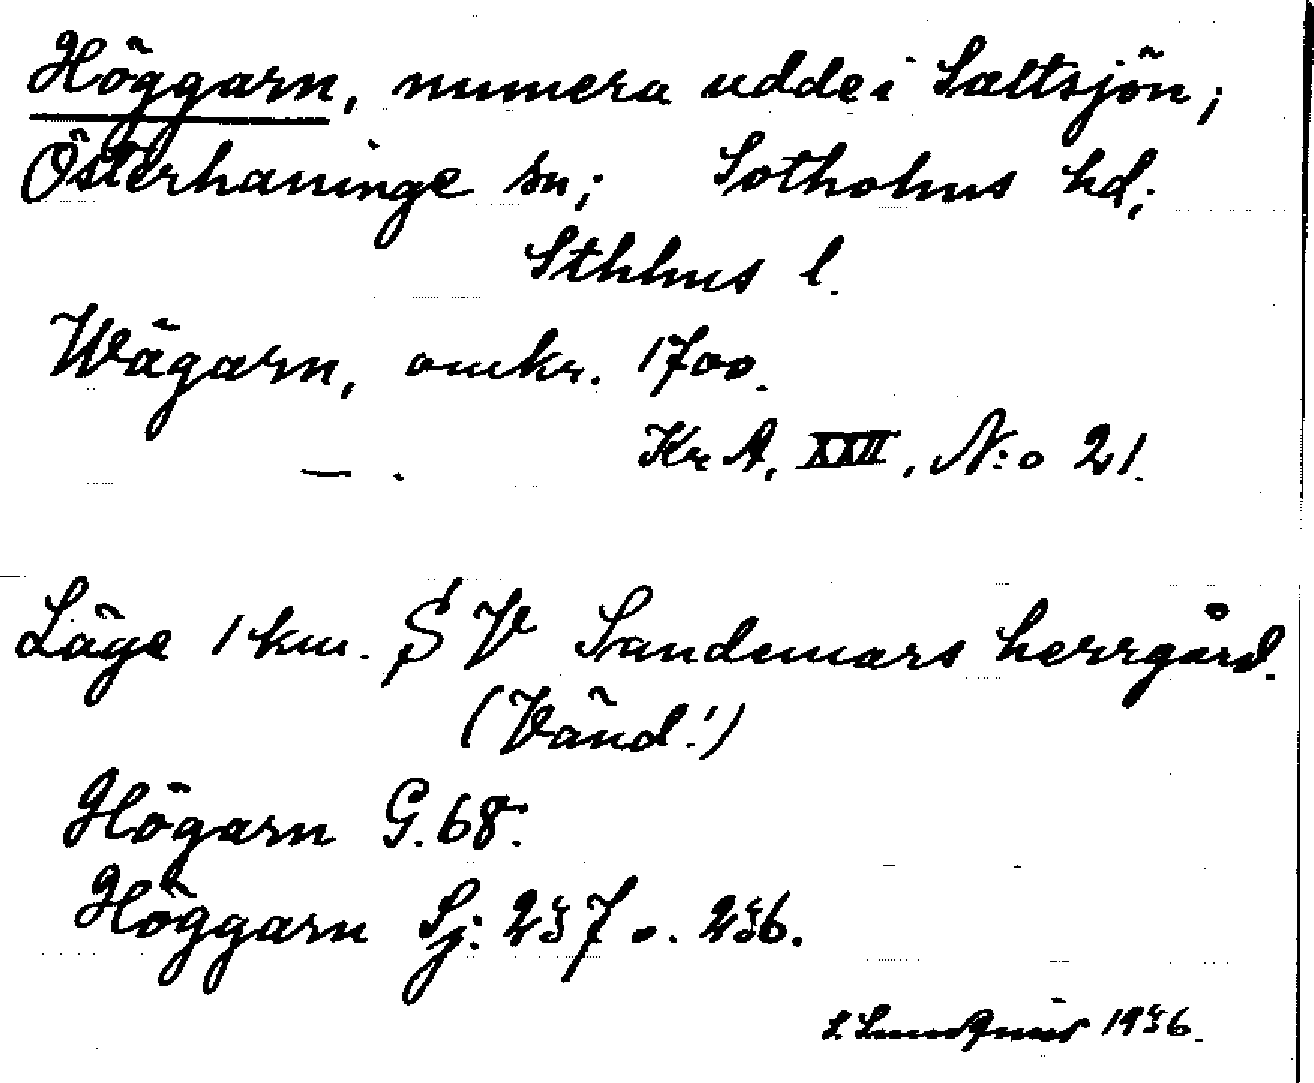 Höggarn, numera udde i Saltsjön;
Österhaninge sn; Sotholms hd;
Sthlms l.
Wägarn, omkr. 1700.
— . Kr A, XXII, N:o 21.
Läge 1 km. SV Sandemars herrgård.
(Vänd!)
Högarn G. 68.
Höggarn Sj: 237 o. 236.
1936.